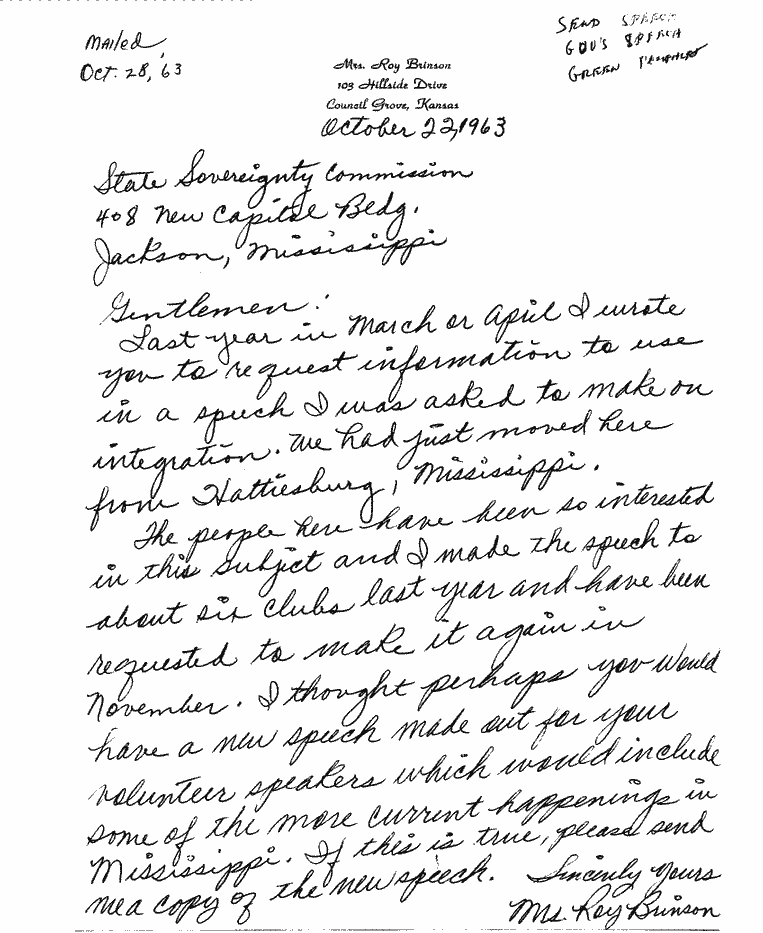 Mailed,
Oct. 28, 63
SEND SPEECH
GOV'S SPEECH
GREEN PAMPHLET
Mrs. Roy Brinson
103 Hillside Drive
Council Grove, Kansas
October 22, 1963
State Sovereignty Commission
408 New Capitol Bldg.
Jackson, Mississippi
Gentlemen:
Last year in March or April I wrote
you to request information to use
in a speech I was asked to make on
integration. We had just moved here
from Hattiesburg, Mississippi.
The people here have been so interested
in this subject and I made the speech to
about six clubs last year and have been
requested to make it again in
November. I thought perhaps you would
have a new speech made out for your
volunteer speakers which would include
some of the more current happenings in
Mississippi. If this is true, please send
me a copy of the new speech. Sincerely yours
Mrs. Roy Brinson